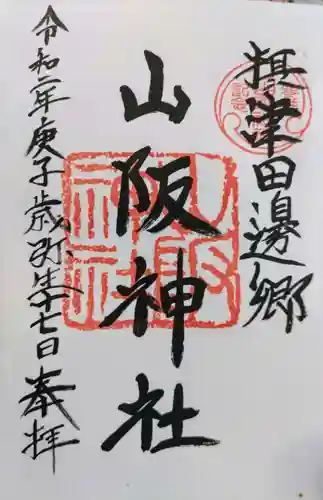 摂津田邊郷
山阪神社
令和二年庚子歳弥生七日奉拝
山阪神社